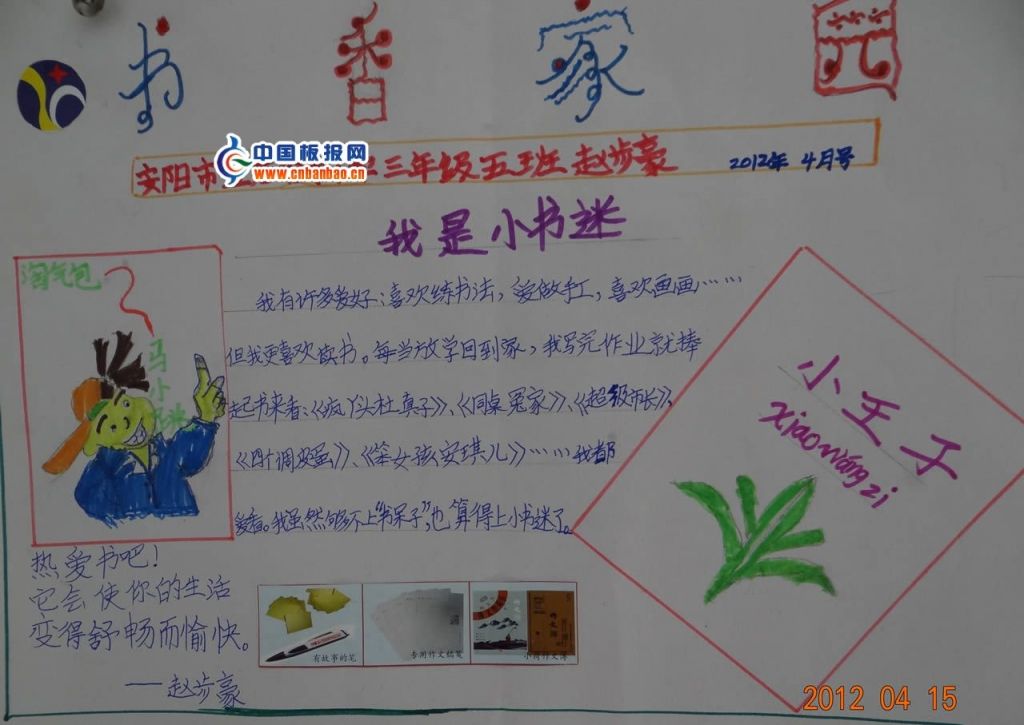 书香家园
中国板报网
www.cnbanbao.cn
安阳市 三年级五班 赵步豪 2012年 4月号
我是小书迷
淘气包
马小跳
我有许多爱好:喜欢练书法,爱做手工,喜欢画画……
但我更喜欢读书。每当放学回到家,我写完作业就捧
起书来看:《疯丫头杜真子》、《同桌冤家》、《超级市长》、
《四个调皮蛋》、《笨女孩安琪儿》……我都
爱看。我虽然够不上“书呆子”,也算得上小书迷了。
小王子
xiao wáng zi
热爱书吧!
它会使你的生活
变得舒畅而愉快。
——赵步豪
有故事的笔
专用作文稿笺
作文簿
2012 04 15